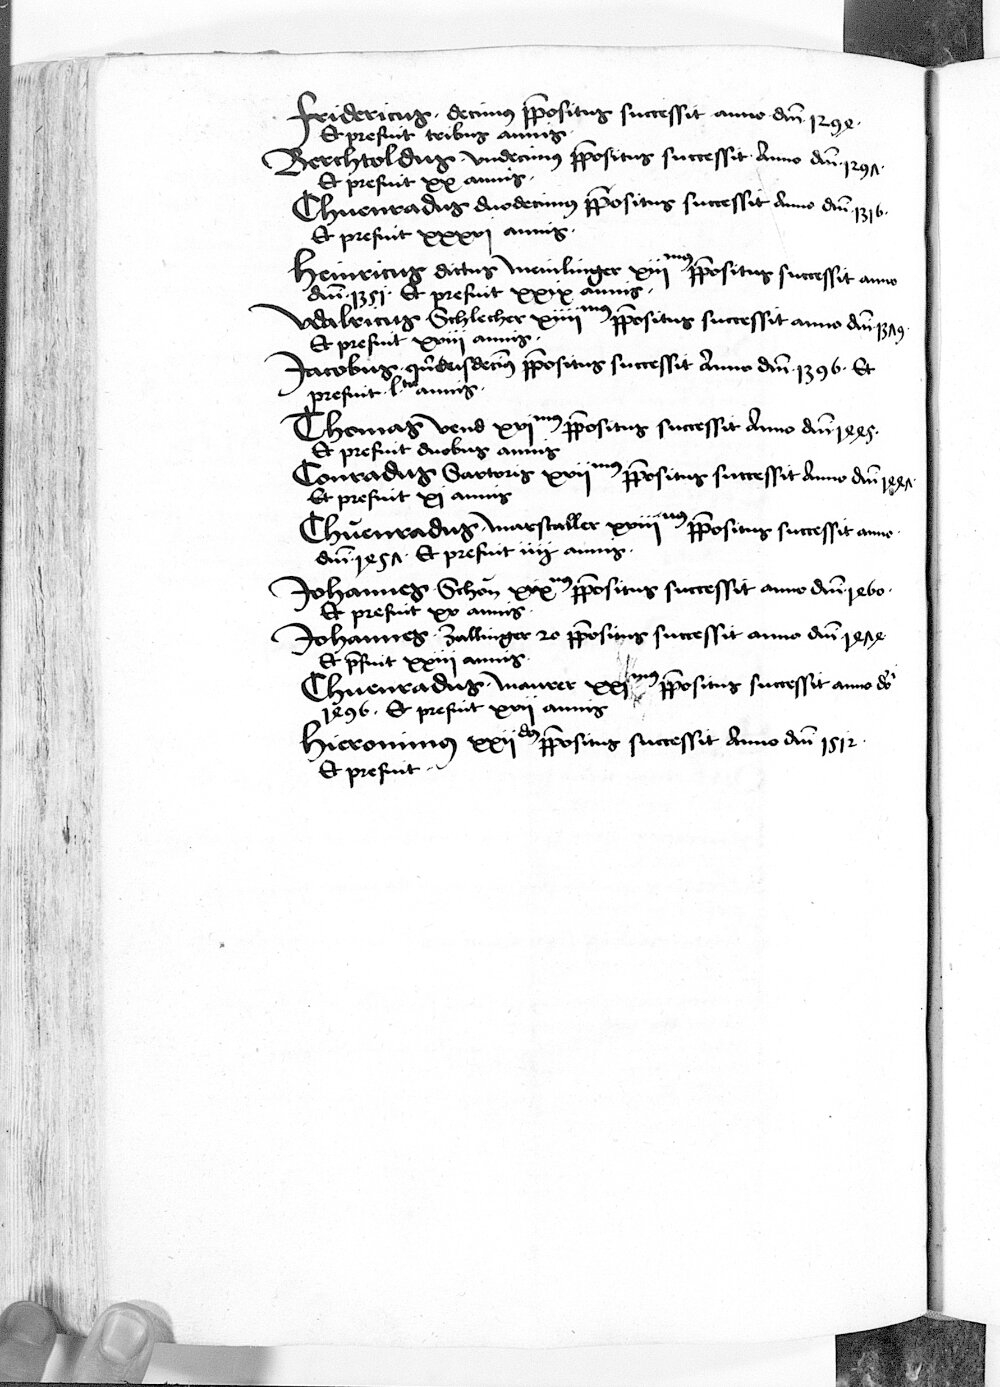 Fridericus · decimus p̄positus successit anno dn̄i 1294 ·
Et prefuit tribus annis ·
Berchtoldus vndecimus p̄positus successit Anno dn̄i · 1297 ·
Et prefuit xx annis ·
Chuenradus duodecimus p̄positus successit Anno dn̄i · 1316 ·
Et prefuit xxxvj annis ·
Heinricus dictus Meinlinger xiij mus p̄positus successit anno
dn̄i · 1351 · Et prefuit xxix annis ·
Vdalricus Schlecher xiiij mus p̄positus successit anno dn̄i · 1379 ·
Et prefuit xviij annis ·
Jacobus · p̄positus successit Anno dn̄i · 1396 · Et
prefuit · l ta annis ·
Thomas vend xvj mus p̄positus successit Anno dn̄i 1445 ·
Et prefuit duobus annis
Conradus Sartoris xvij mus p̄positus successit Anno dn̄i 1447 ·
Et prefuit xj annis
Chuenradus Marscaller xviij mus p̄positus successit anno ·
dn̄i · 1457 · Et prefuit iiij annis ·
Johannes Schön xix mus p̄positus successit anno dn̄i 1460 ·
Et prefuit xv annis ·
Johannes · Zallinger 20 p̄positus successit anno dn̄i 1474
Et p̄fuit xxiij annis ·
Chuenradus Maurer xxj mus p̄positus successit anno do
1496 · Et prefuit xvij annis
Hieronimus xxij dus p̄positus successit Anno dn̄i 1512 ·
Et prefuit ·